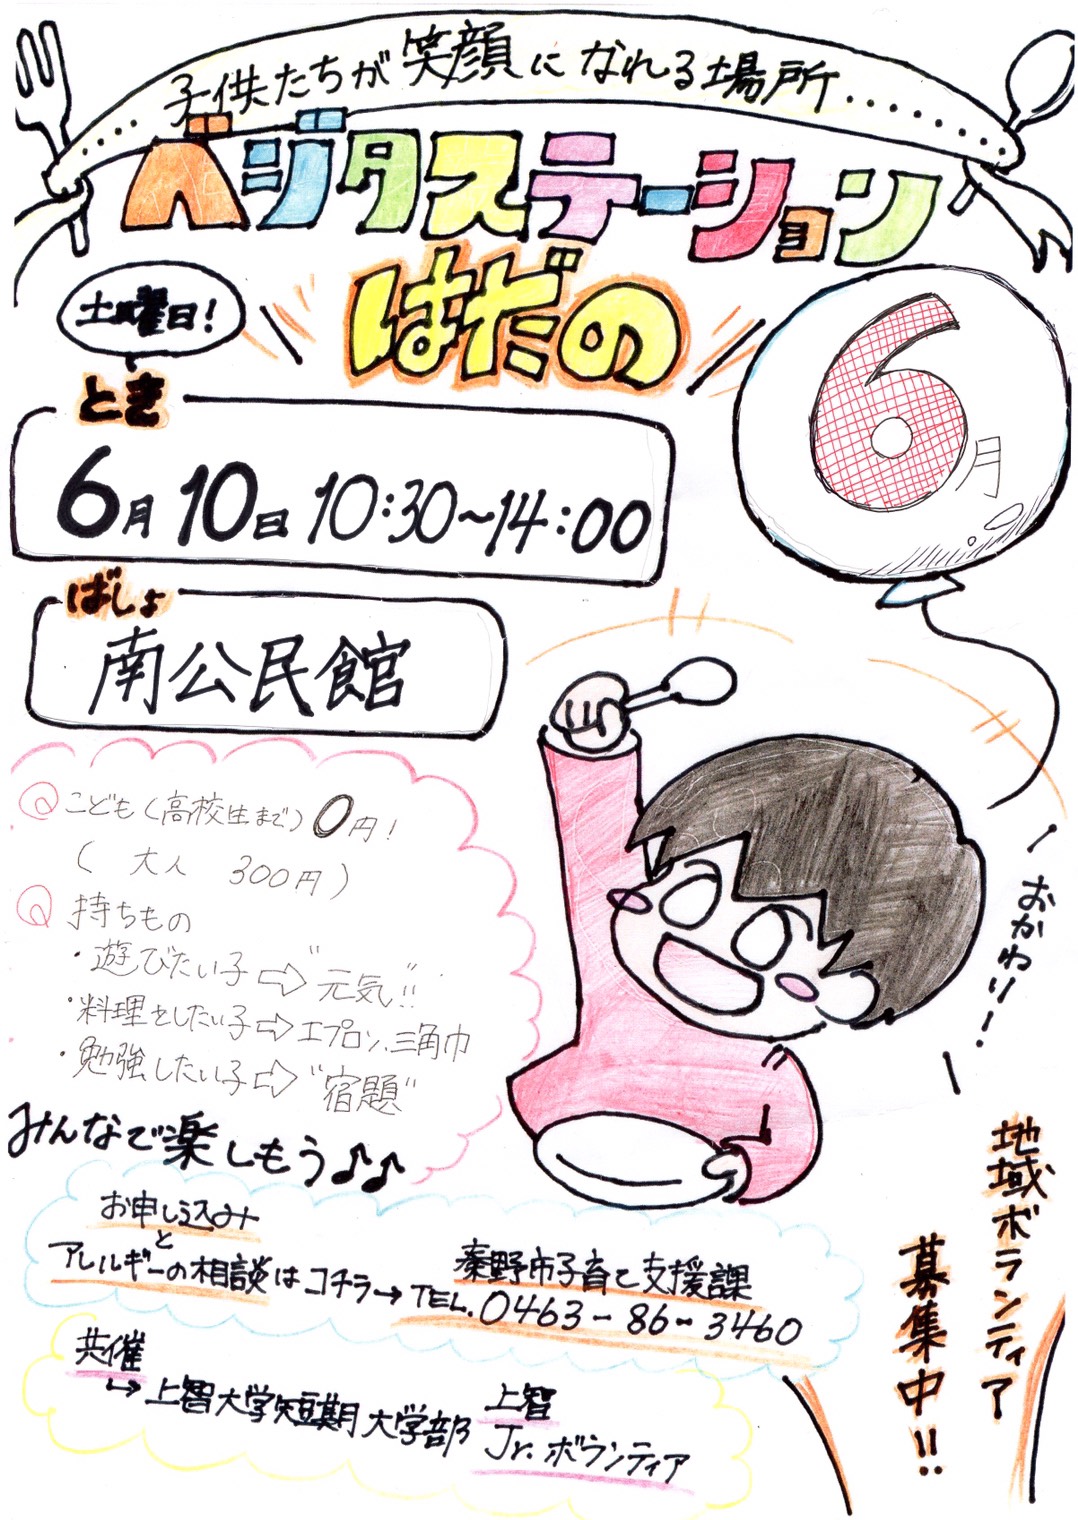 子供たちが笑顔になれる場所....
ベジタステーション
はだの
6月
土曜日!
とき
6月10日 10:30~14:00
ばしょ
南公民館
こども(高校生まで)0円!
(大人 300円)
持ちもの
・遊びたい子⇨"元気"!!
・料理をしたい子⇨エプロン、三角巾
・勉強したい子⇨"宿題"
みんなで楽しもう♪♪
おかわり!
お申し込み
と
アレルギーの相談はコチラ→
秦野市子育て支援課
TEL.0463-86-3460
地域ボランティア
募集中!!
共催
↳上智大学短期大学部
上智
Jr.ボランティア